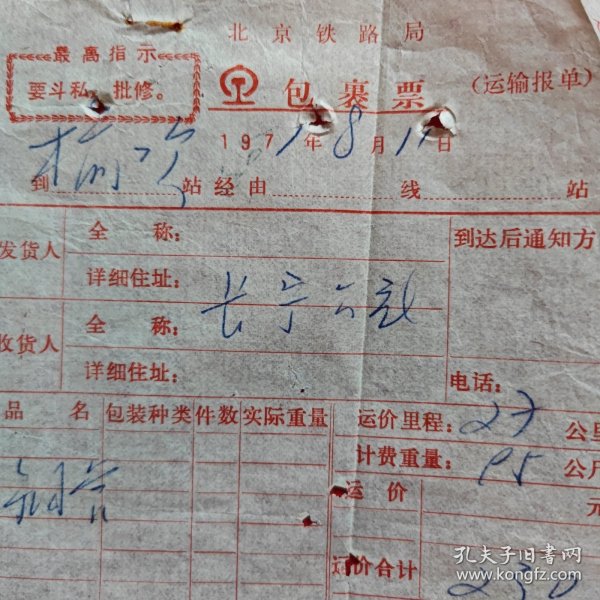 北京铁路局
最高指示
要斗私，批修。
包裹票
(运输报单)
197 年8月1 日
到榆次站经由 线 站
发货人
全 称：
详细住址：
到达后通知方
长宁
收货人
全 称：
详细住址：
电话：
品 名
包装种类
件数
实际重量
运价里程：27公里
计费重量：95公斤
钢管
运价
元
运价合计
230
孔夫子旧书网
www.kongfz.com